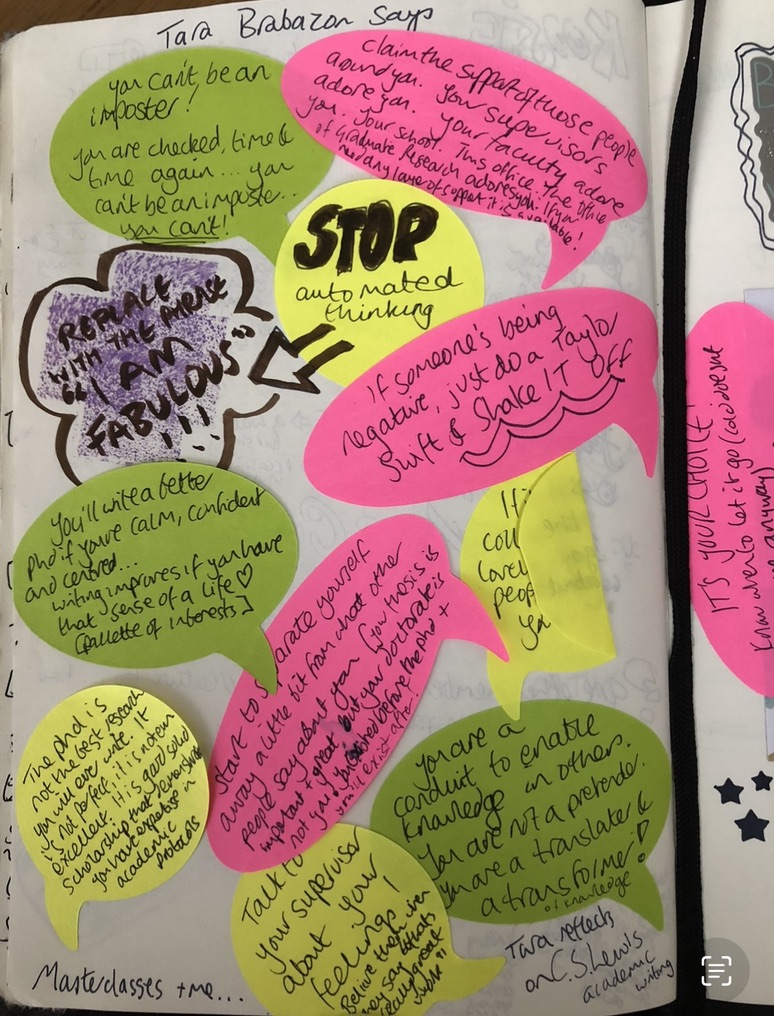 Tara Brabazon Says
you can't be an
imposter!
you are checked, time &
time again... you
can't be an imposter..
you can't!
claim the support of those people
around you. Your supervisors
adore you. your faculty adore
you. Your school. This office. The office
of Graduate Research adores you. If you
need any layer of support it is available!
STOP
automated
thinking
REPLACE
WITH THE PHRASE
"I AM
FABULOUS"
!!!
If someone's being
negative, just do a Taylor
Swift & Shake IT OFF
You'll write a better
PhD if you're calm, confident
and centred...
writing improves if you have
that sense of a life ♡
[pallette of interests]
If
cou
lovel
peop
Ya
Start to separate yourself
away a little bit from what other
people say about you (you thesis is
important + great but your doctorate is
not you) you existed before the phd +
you'll exist after!
The phd is
not the best research
you will ever write. It
is not perfect, it is not even
excellent. It is good solid
scholarship that demonstrates
you have expertise in
academic
protocols
You are a
conduit to enable
knowledge in others.
You are not a pretender.
You are a translater &
a transformer!
of knowledge
Talk to
your supervisor
about your
feelings!
Believe them when
they say "that's
really great
"
Tara reflects
on C.S. Lewis
academic
writing
Masterclasses + me...
IT'S YOUR CHOICE!
know when to let it go (cold doesn't
anyway)